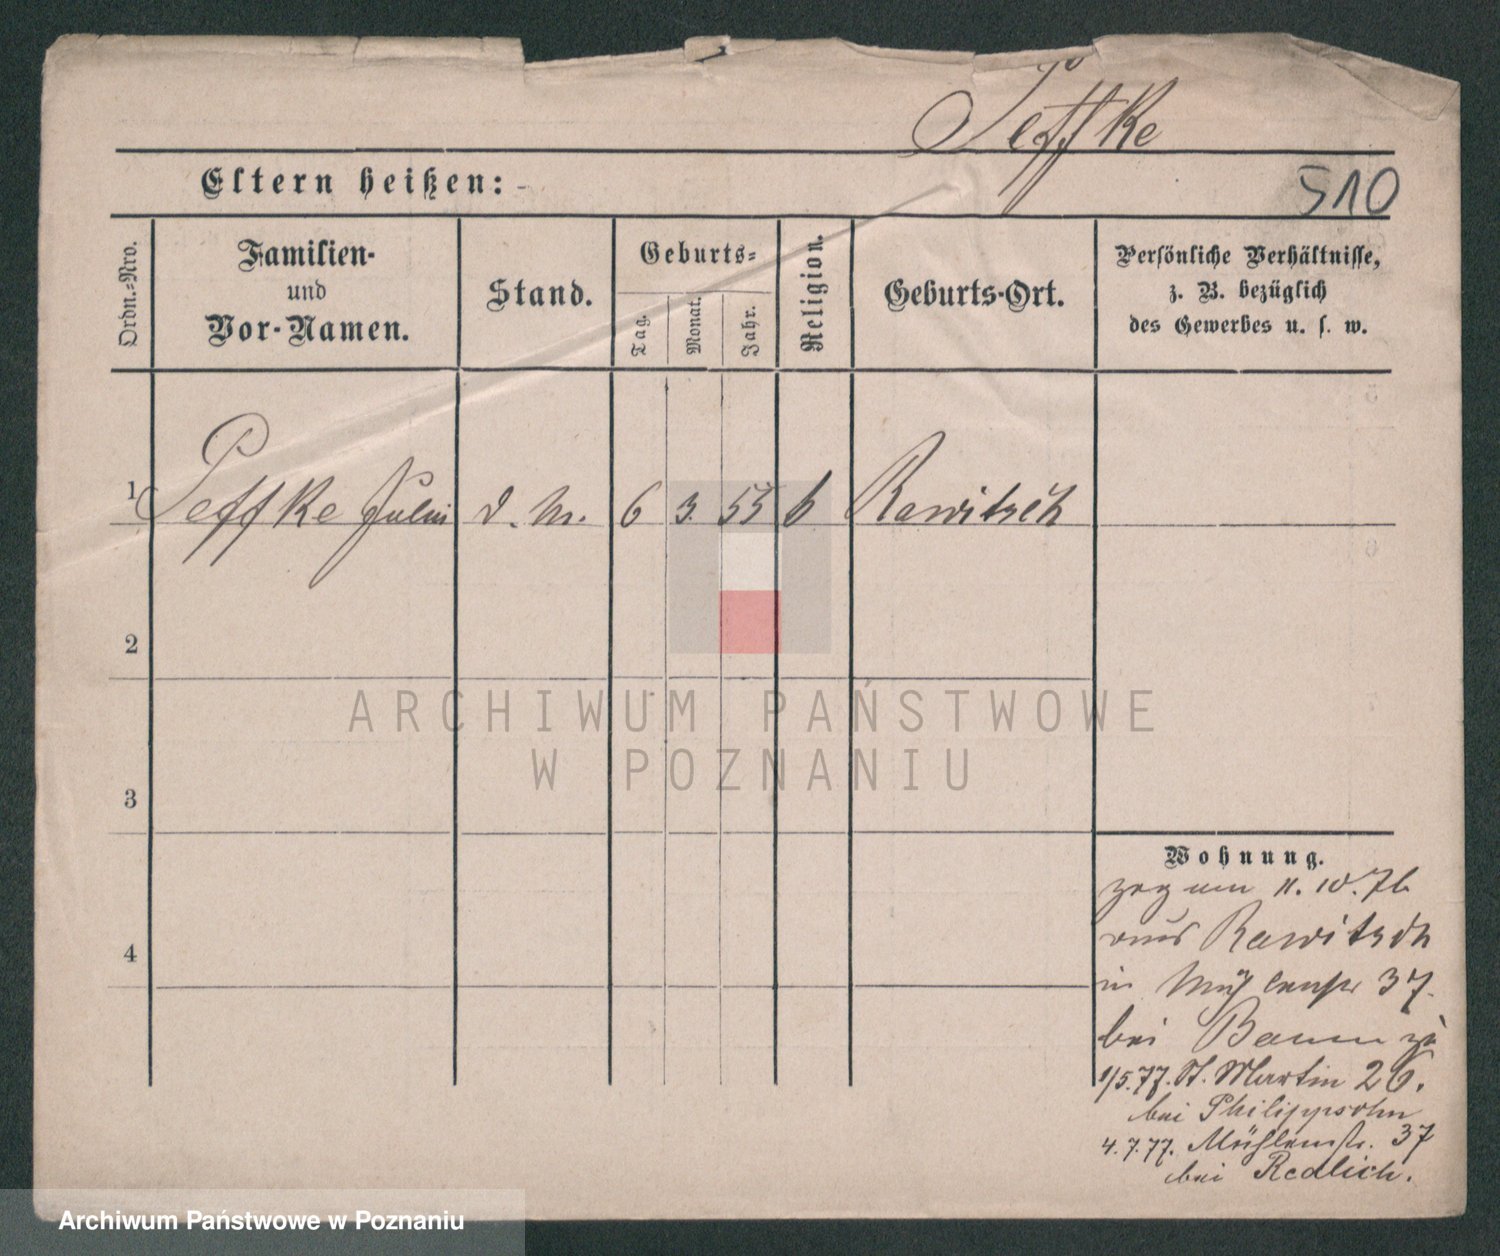 Peffke
Eltern heißen:
510
Ordn.-Nro.
Familien-
und
Vor-Namen.
Stand.
Geburts-
Tag.
Monat.
Jahr.
Religion.
Geburts-Ort.
Persönliche Verhältnisse,
z. B. bezüglich
des Gewerbes u. s. w.
1 Peffke Julius 6 3. 55 Rawitsch
2
3
4
ARCHIWUM PAŃSTWOWE
W POZNANIU
Wohnung.
zog am 11.10.76
aus Rawitsch
in Mühlenstr 37.
bei Baum zu
1/5.77. St. Martin 26.
bei Philippsohn
4.7.77. Mühlenstr. 37
bei Redlich.
Archiwum Państwowe w Poznaniu